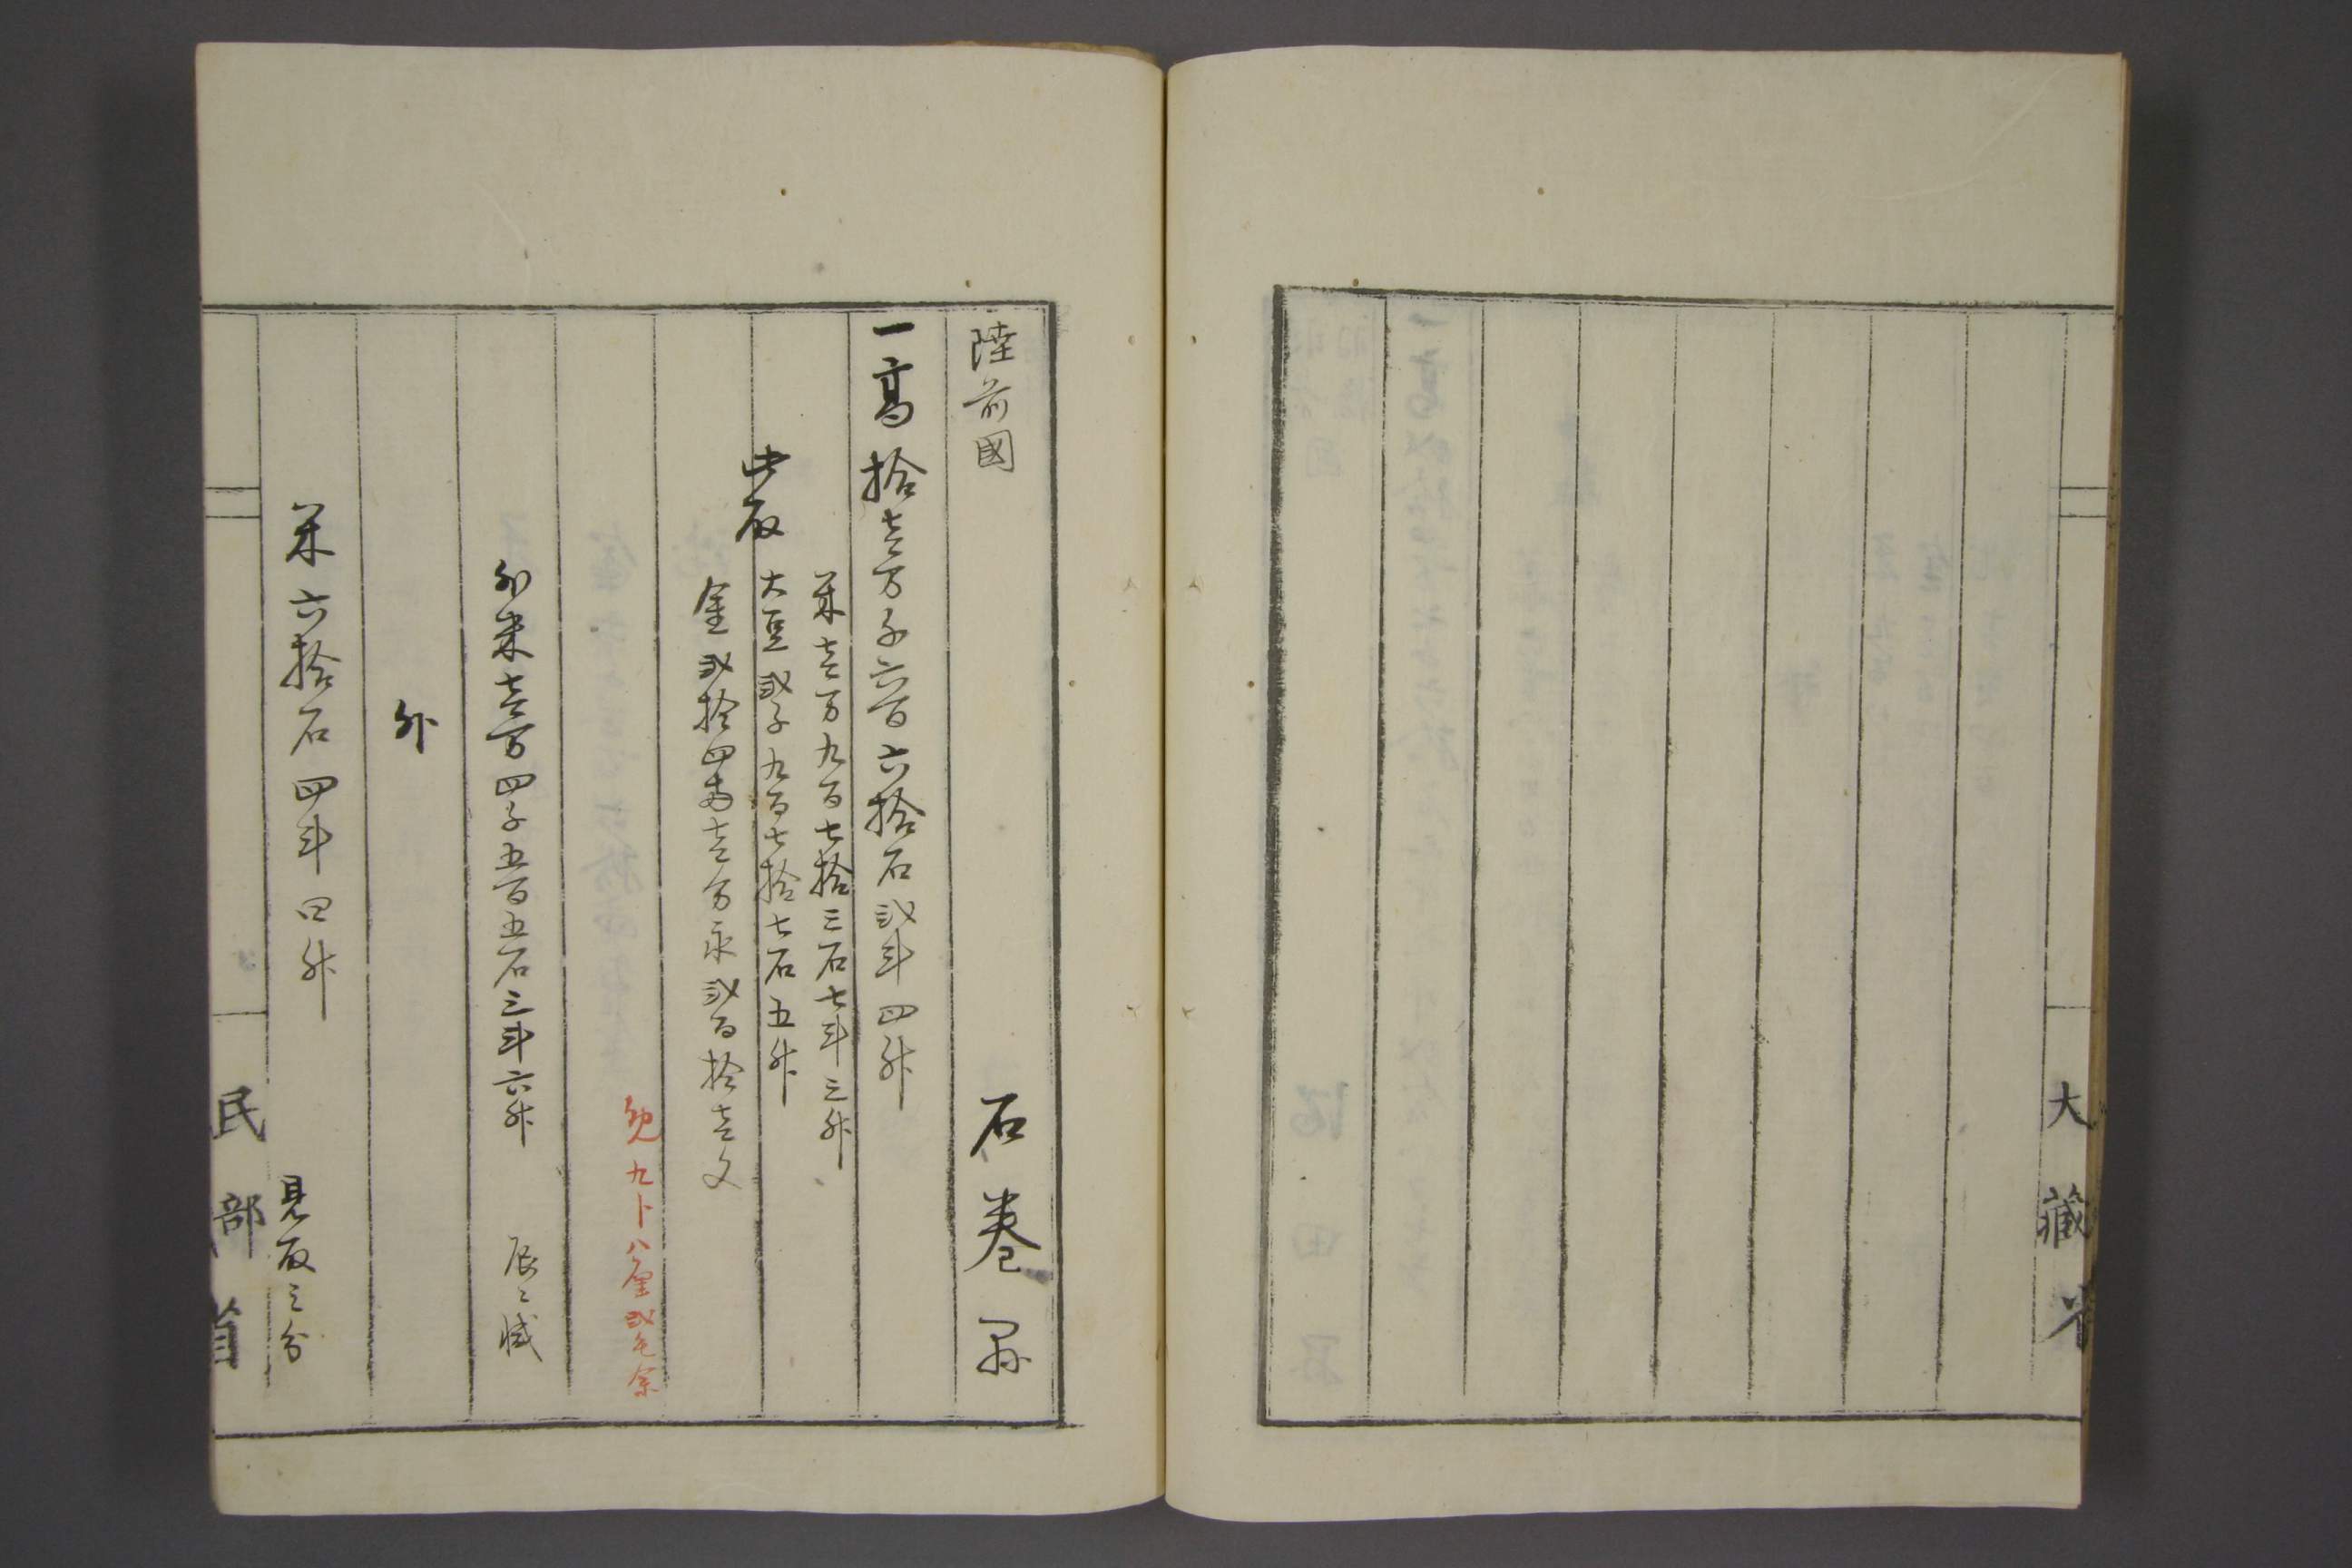 大藏省
陸前國　石巻縣
一高拾壱万千六百六拾石弐斗四升
米壱万九百七拾三石七斗三升
此取　大豆弐千九百七拾七石五升
金弐拾四両壱分永弐百拾壱文
免九分八厘弐毛余
外米壱万四千五百五石三斗六升　辰ニ減
外
米六拾石四斗四升　見取之分
民部省